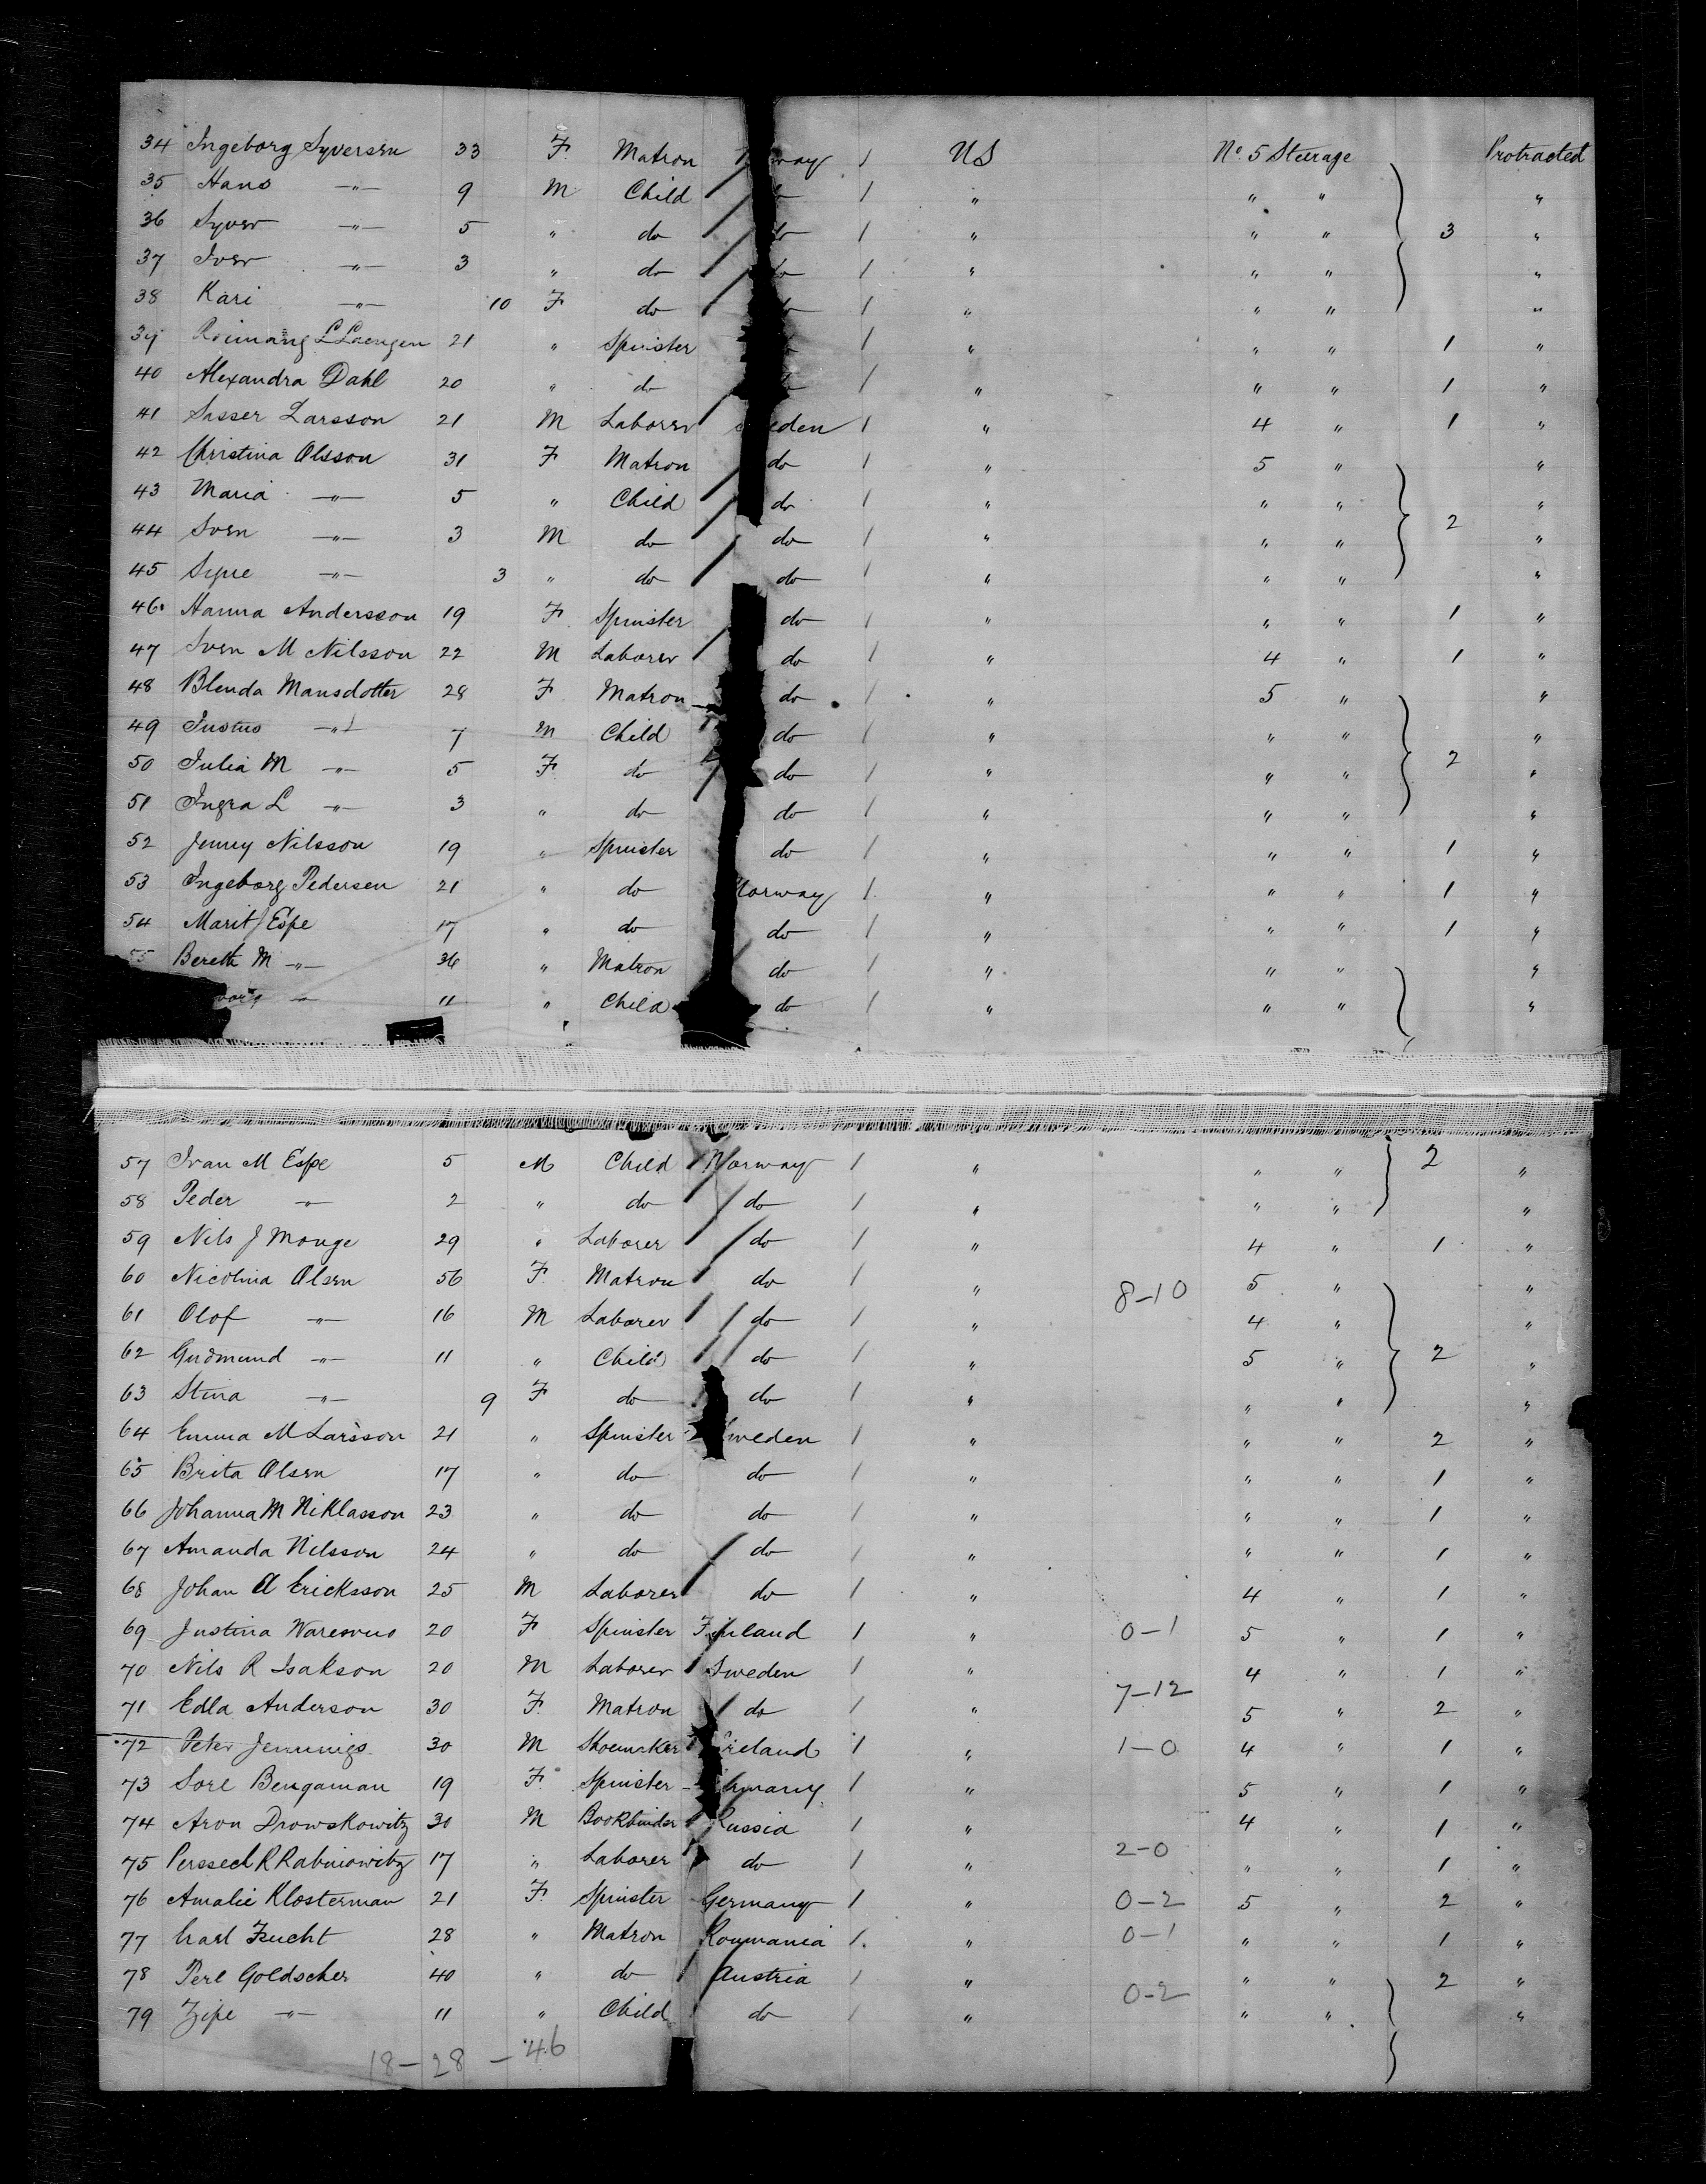 34 Ingeborg Syversen 33 F. Matron way / US No. 5 Steerage Protracted
35 Hans —"— 9 M Child / " " " "
36 Syver —"— 5 " do / " " " 3 "
37 Iver —"— 3 " do / " " " "
38 Kari —"— 10 F do / " " " "
39 21 " Spinster / " " " 1 "
40 Alexandra Dahl 20 " do / " " " 1 "
41 Sasser Larsson 21 M Laborer eden / " 4 " 1 "
42 Christina Olsson 31 F Matron do / " 5 " "
43 Maria —"— 5 " Child do / " " " "
44 Sven —"— 3 M do do / " " " 2 "
45 Signe —"— 3 " do do / " " " "
46 Hanna Andersson 19 F. Spinster do / " " " 1 "
47 Sven M Nilsson 22 M Laborer do / " 4 " 1 "
48 Blenda Mansdotter 28 F. Matron do / " 5 " "
49 Justus —"— 7 M Child do / " " " "
50 Julia M —"— 5 F. do do / " " " 2 "
51 Ingra L —"— 3 " do do / " " " "
52 Jenny Nilsson 19 " Spinster do / " " " 1 "
53 Ingeborg Pedersen 21 " do Norway / " " " 1 "
54 Marit J Espe 17 " do do / " " " 1 "
55 Bereth M —"— 36 " Matron do / " " " "
—"— 11 " Child do / " " " "
57 Ivan M Espe 5 M Child Norway / " " " 2 "
58 Peder —"— 2 " do do / " " " "
59 Nils J Monge 29 " Laborer do / " 4 " 1 "
60 Nicolina Olsen 56 F. Matron do / " 8-10 5 " "
61 Olof —"— 16 M Laborer do / " 4 " "
62 Gudmund —"— 11 " Child do / " 5 " 2 "
63 Stina —"— 9 F do do / " " " "
64 Emma M Larsson 21 " Spinster Sweden / " " " 2 "
65 Brita Olsen 17 " do do / " " " 1 "
66 Johanna M Niklasson 23 " do do / " " " 1 "
67 Amanda Nilsson 24 " do do / " " " 1 "
68 Johan A Ericksson 25 M Laborer do / " 4 " 1 "
69 Justina 20 F Spinster Finland / " 0-1 5 " 1 "
70 Nils R Isakson 20 M Laborer Sweden / " 4 " 1 "
71 Edla Anderson 30 F. Matron do / " 7-12 5 " 2 "
72 Peter Jennings 30 M Shoemaker Ireland / " 1-0 4 " 1 "
73 Sore Bengaman 19 F. Spinster many / " 5 " 1 "
74 Aron Drowskowitz 30 M Bookbinder Russia / " 4 " 1 "
75 Perssech R Rabinowitz 17 " Laborer do / " 2-0 " " 1 "
76 Amalie Klosterman 21 F. Spinster Germany / " 0-2 5 " 2 "
77 28 " Matron Roumania / " 0-1 " " 1 "
78 Perl Goldscher 40 " do Austria / " " " 2 "
79 Zipe —"— 11 " Child do / " 0-2 " " "
18-28-46